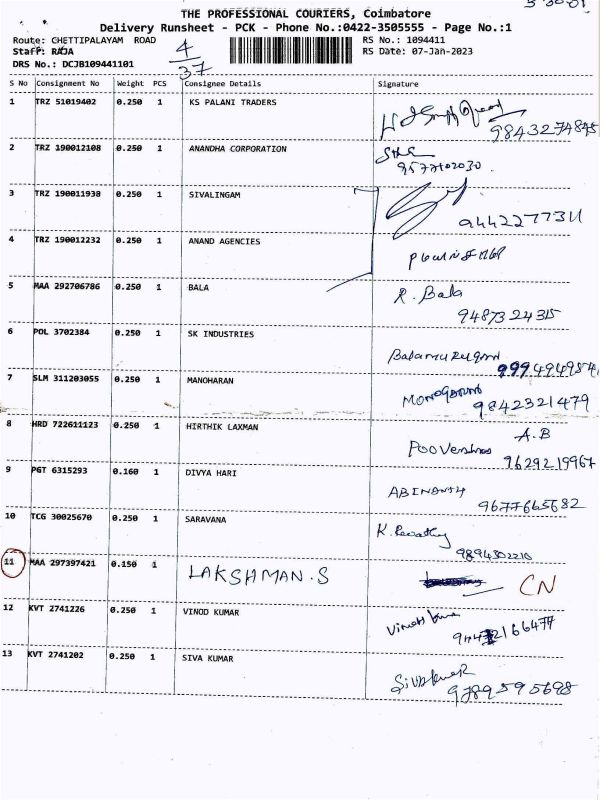 THE PROFESSIONAL COURIERS, Coimbatore
Delivery Runsheet - PCK - Phone No.:0422-3505555 - Page No.:1
Route: CHETTIPALAYAM ROAD
RS No.: 1094411
Staff: RAJA
RS Date: 07-Jan-2023
DRS No.: DCJB109441101
4
37
S No Consignment No Weight PCS Consignee Details Signature
1 TRZ 51019402 0.250 1 KS PALANI TRADERS
9843274845
2 TRZ 190012108 0.250 1 ANANDHA CORPORATION
3 TRZ 190011938 0.250 1 SIVALINGAM
4 TRZ 190012232 0.250 1 ANAND AGENCIES
5 MAA 292706786 0.250 1 BALA R. Bala
9487324315
6 POL 3702384 0.250 1 SK INDUSTRIES
Balamurugan
7 SLM 311203055 0.250 1 MANOHARAN
9842321479
8 HRD 722611123 0.250 1 HIRTHIK LAXMAN A.B
9629219967
9 PGT 6315293 0.160 1 DIVYA HARI
ABINAYA
9677665682
10 TCG 30025670 0.250 1 SARAVANA K. Revathy
9894302210
11 MAA 297397421 0.150 1 LAKSHMAN.S CN
12 KVT 2741226 0.250 1 VINOD KUMAR
13 KVT 2741202 0.250 1 SIVA KUMAR Sivakumar
9789595698